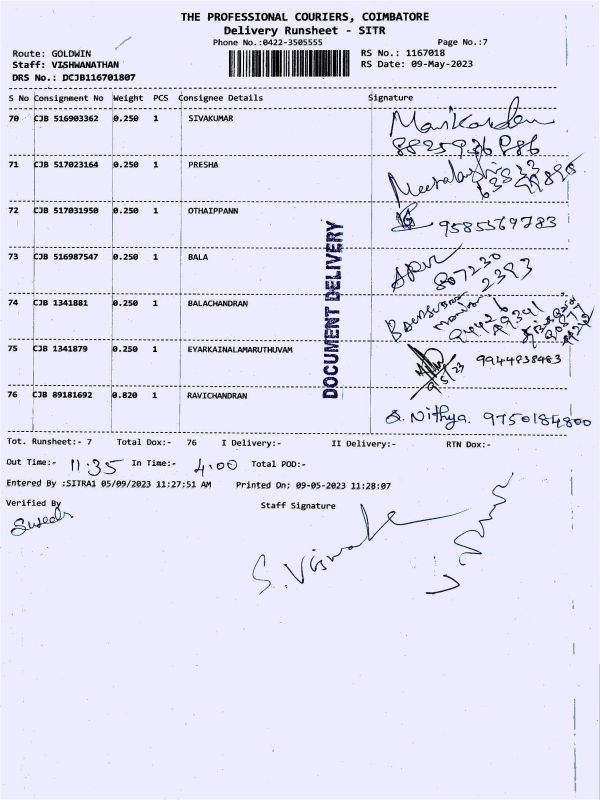 THE PROFESSIONAL COURIERS, COIMBATORE
Delivery Runsheet - SITR
Phone No.:0422-3505555 Page No.:7
Route: GOLDWIN RS No.: 1167018
Staff: VISHWANATHAN RS Date: 09-May-2023
DRS No.: DCJB116701807
S No Consignment No Weight PCS Consignee Details Signature
70 CJB 516903362 0.250 1 SIVAKUMAR
71 CJB 517023164 0.250 1 PRESHA
72 CJB 517031950 0.250 1 OTHAIPPANN 9585569783
73 CJB 516987547 0.250 1 BALA 807230
2393
74 CJB 1341881 0.250 1 BALACHANDRAN
75 CJB 1341879 0.250 1 EYARKAINALAMARUTHUVAM 9944838483
9/5/23
76 CJB 89181692 0.820 1 RAVICHANDRAN
S. Nithya. 9750184800
DOCUMENT DELIVERY
Tot. Runsheet:- 7 Total Dox:- 76 I Delivery:- II Delivery:- RTN Dox:-
Out Time:- 11:35 In Time:- 4:00 Total POD:-
Entered By :SITRA1 05/09/2023 11:27:51 AM Printed On: 09-05-2023 11:28:07
Verified By Staff Signature